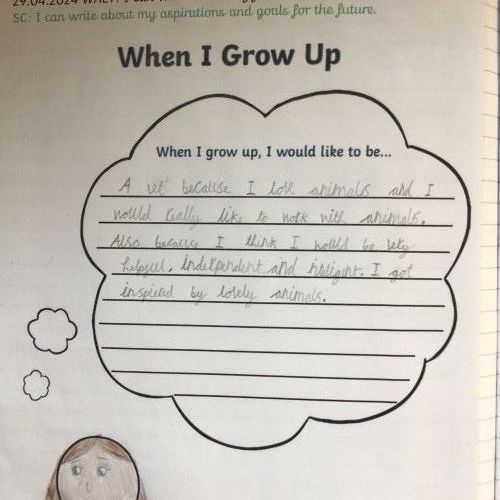 SC: I can write about my aspirations and goals for the future.
When I Grow Up
When I grow up, I would like to be...
A vet because I love animals and I
would really like to work with animals.
Also because I think I would be very
helpful, indelpendent and inteligent. I got
inspiered by lovely animals.